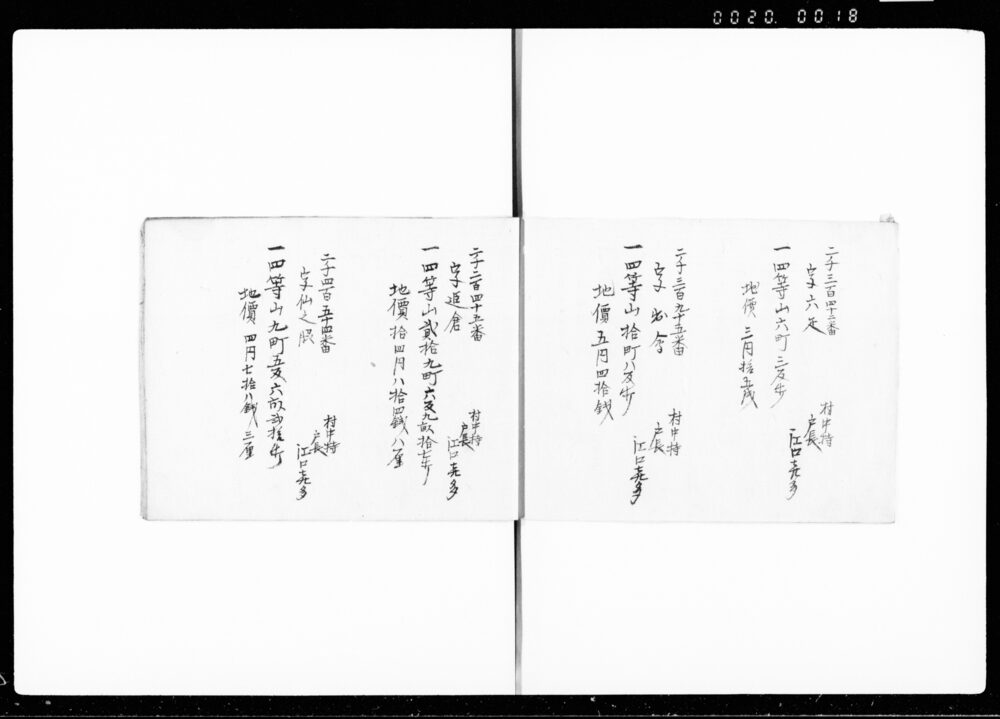 0020. 0018
二千三百四十二番
字六疋
村中持
戸長
江口嘉多
一四等山六町三反歩
地價 三円拾五戋
二千三百九十五番
字
村中持
戸長
江口嘉多
一四等山拾町八反歩
地價 五円四拾銭
二千二百四十五番
字追倉
村中持
戸長
江口嘉多
一四等山貳拾九町六反九畝拾七歩
地價 拾四円八拾四銭八厘
二千四百五十四番
字仙之
村中持
戸長
江口嘉多
一四等山九町五反六畝弐拾歩
地價 四円七拾八銭三厘